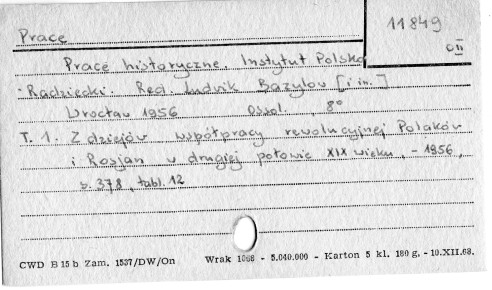 Prace
11849
CII
Prace historyczne. Instytut Polsko
-Radziecki. Red. Ludwik Bazylow [i in.]
Wrocław 1956 Ossol. , 8°
T. 1. Z dziejów współpracy rewolucyjnej Polaków
i Rosjan w drugiej połowie XIX wieku, - 1956,
s. 378, tabl. 12
CWD B 15 b Zam. 1537/DW/On Wrak 1066 - 5.040.000 - Karton 5 kl. 180 g. - 10.XII.68.